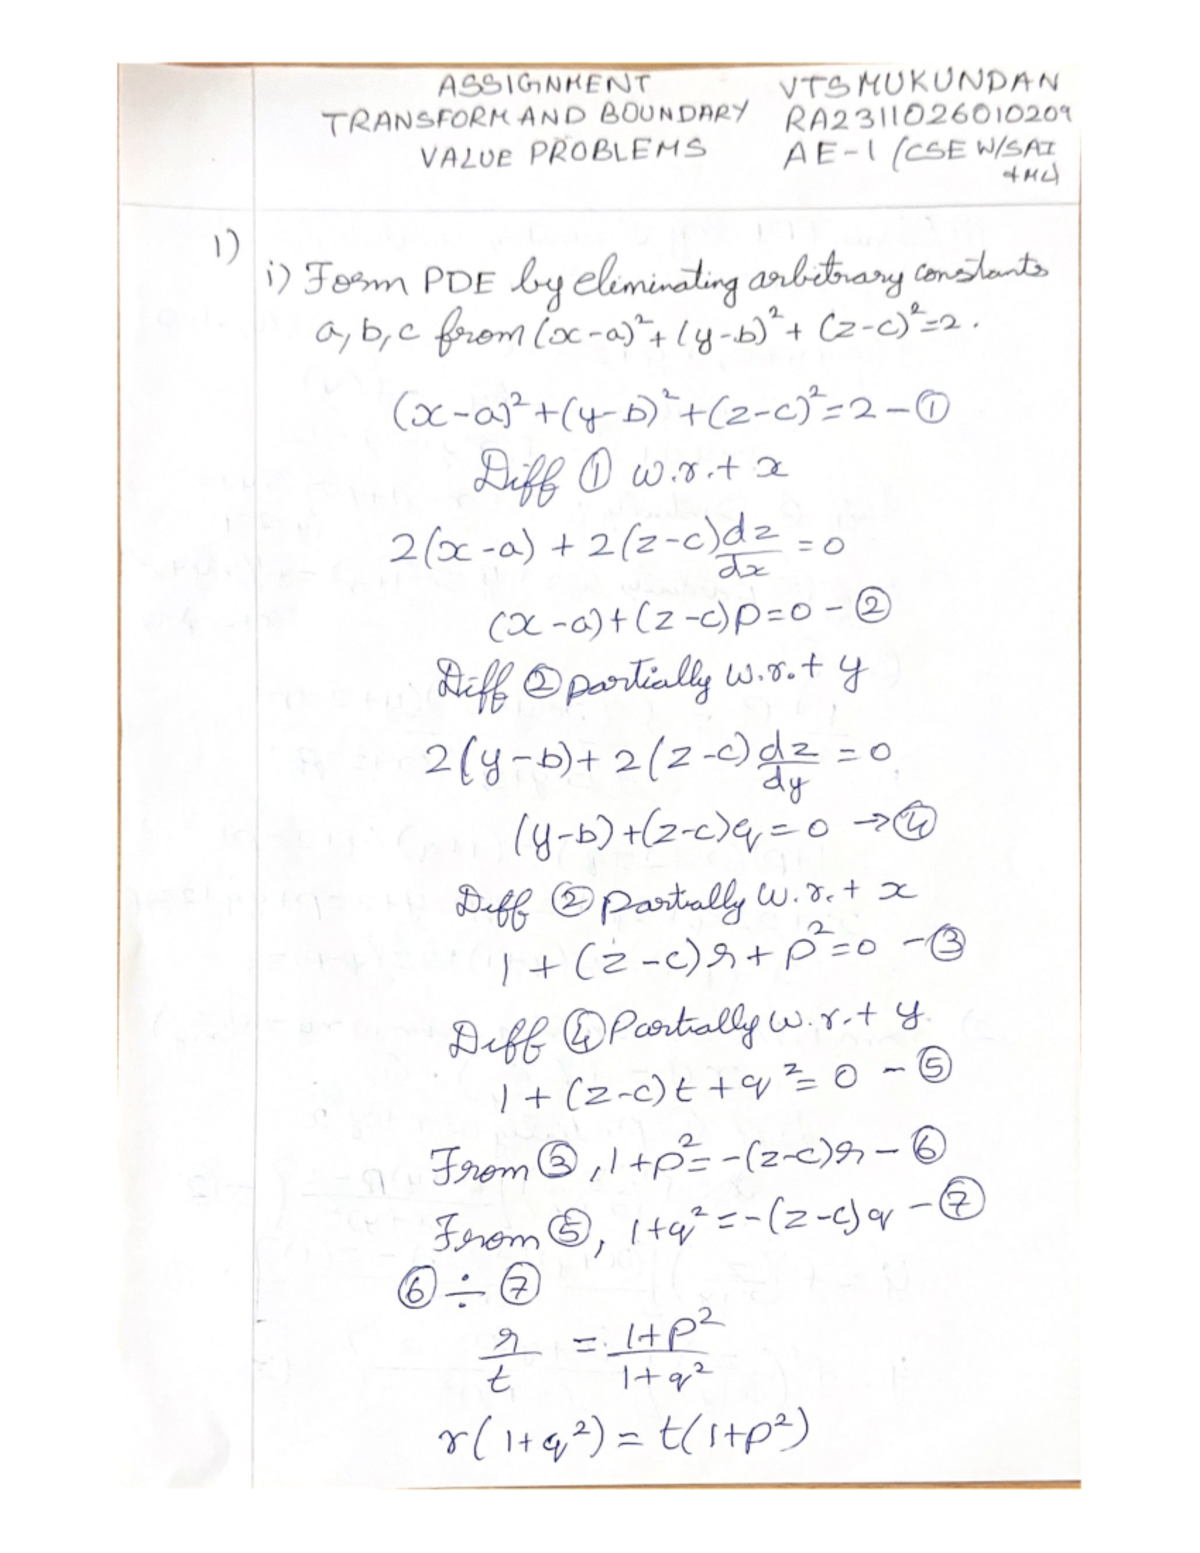 ASSIGNMENT VTS MUKUNDAN
TRANSFORM AND BOUNDARY RA2311026010209
VALUE PROBLEMS AE-1 (CSE W/S AI
+ ML)
1)
i) Form PDE by eliminating arbitrary constants
a, b, c from (x-a)²+(y-b)²+(z-c)²=2.
(x-a)²+(y-b)²+(z-c)²=2 - ①
Diff ① w.r.t x
2(x-a) + 2(z-c)dz/dx = 0
(x-a)+(z-c)p=0 - ②
Diff ② partially w.r.t y
2(y-b)+ 2(z-c) dz/dy = 0
(y-b)+(z-c)q=0 → ④
Diff ② partially w.r.t x
1+(z-c)r+p²=0 - ③
Diff ④ Partially w.r.t y
1+(z-c)t+q²=0 - ⑤
From ③, 1+p²=-(z-c)r - ⑥
From ⑤, 1+q²=-(z-c)q - ⑦
⑥ ÷ ⑦
r/t = 1+p²/1+q²
r(1+q²) = t(1+p²)